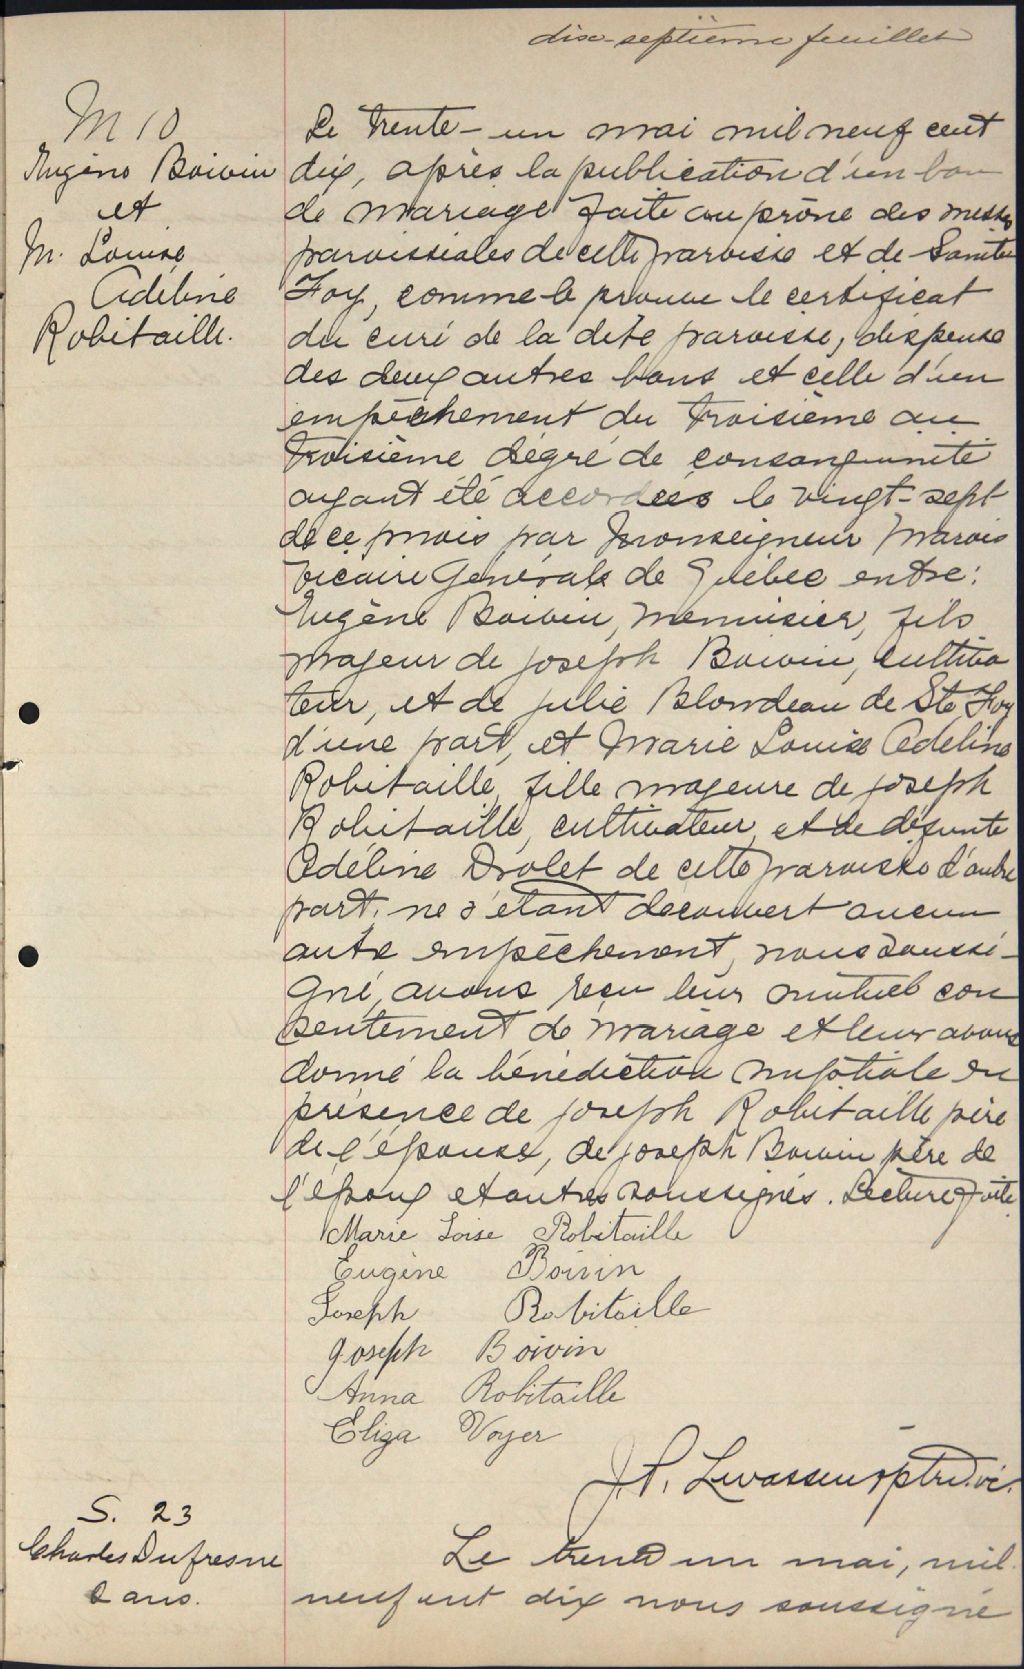 dix-septième feuillet
M 10
Eugène Boivin
et
M. Louise
Adéline
Robitaille.
Le trente-un mai mil neuf cent
dix, après la publication d'un ban
de mariage faite au prône des messes
paroissiales de cette paroisse et de Sainte
Foy, comme le prouve le certificat
du curé de la dite paroisse, dispense
des deux autres bans et celle d'un
empêchement du troisième au
troisième dégré de consanguinité
ayant été accordées le vingt-sept
de ce mois par Monseigneur Marois
Vicaire Générale de Québec entre:
Eugène Boivin, menuisier, fils
majeur de Joseph Boivin, cultiva
teur, et de Julie Blondeau de Ste Foy
d'une part, et Marie Louise Adeline
Robitaille, fille majeure de Joseph
Robitaille, cultivateur, et de défunte
Adéline Drolet de cette paroisse d'autre
part, ne s'étant découvert aucun
autre empêchement, nous soussi-
gné, avons reçu leur mutuel con
sentement de mariage et leur avons
donné la bénédiction nuptiale en
présence de Joseph Robitaille père
de l'épouse, de Joseph Boivin père de
l'époux et autres soussignés. Lecture faite
Marie Loise Robitaille
Eugène Boivin
Joseph Robitaille
Joseph Boivin
Anna Robitaille
Eliza Voyer
J. P. Levasseur ptre. vic.
S. 23
Charles Dufresne
2 ans.
Le trente un mai, mil
neuf cent dix nous soussigné